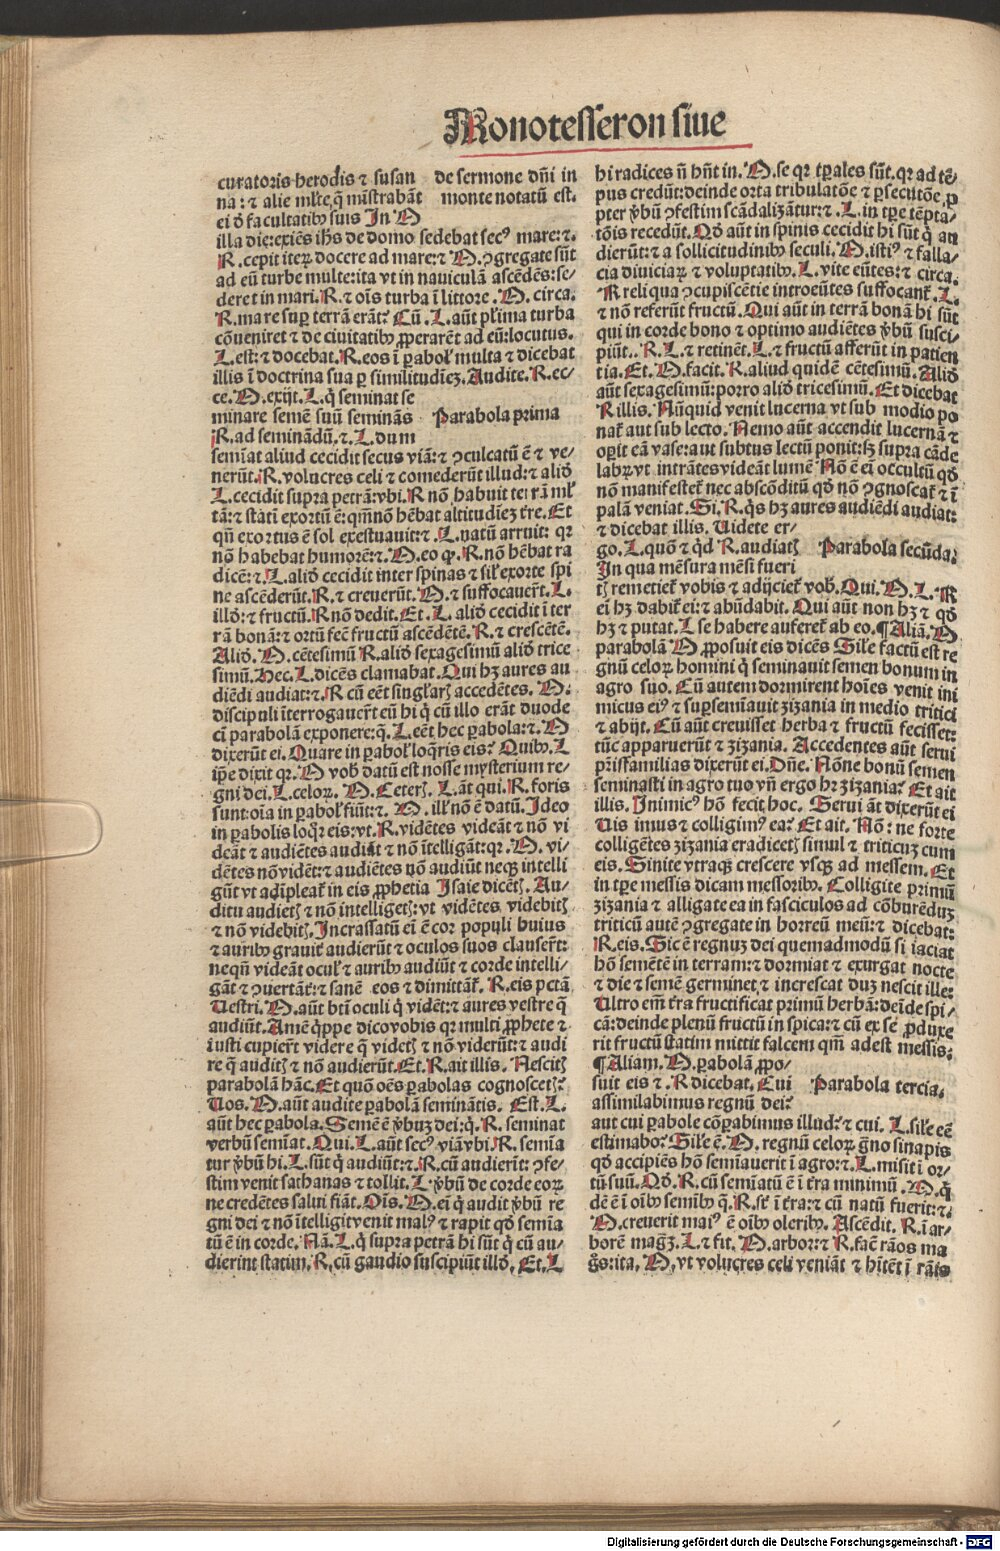 Monotesseron siue
curatoris herodis ⁊ susan
na: ⁊ alie ml̄te, q̄ mīstrabāt
ei ð facultatib⁹ suis In M
de sermone dn̄i in
monte notatū est.
illa die: exiēs ih̄s de domo sedebat sec⁹ mare: ⁊.
R. cepit iteꝝ docere ad mare: ⁊ M. ꝯgregate sūt
ad eū turbe multe: ita vt in nauiculā ascēdēs: se/
deret in mari. R. ⁊ oīs turba ī littore. M. circa.
R. mare suꝑ terrā erāt? Cū. L. aūt plīma turba
cōueniret ⁊ de ciuitatib⁹ ꝓperarēt ad eū: locutus.
L. est: ⁊ docebat. R. eos ī ꝑabol' multa ⁊ dicebat
illis ī doctrina sua ꝑ similitudīeꝫ. Audite. R. ec/
ce. M. exijt. L. q̄ seminat se
minare semē suū seminās
Parabola prima
R. ad seminādū, ⁊. L. dum
semīat aliud cecidit secus viā: ⁊ ꝯculcatū ē ⁊ ve/
nerūt. R. volucres celi ⁊ comederūt illud: ⁊ aliđ
L. cecidit supra petrā: vbi. R nō habuit terrā ml'
tā: ⁊ statī exortū ē: qm̄ nō hēbat altitudīeꝫ tr̄e. Et
qn̄ exortus ē sol exestuauit: ⁊. L. natū arruit: qꝛ
nō habebat humorē: ⁊. M. eo ꝙ. R. nō hēbat ra
dicē: ⁊. L. aliđ cecidit inter spinas ⁊ sil' exorte spi
ne ascēderūt. R. ⁊ creuerūt. M. ⁊ suffocauer̄t. L.
illđ: ⁊ fructū. R nō dedit. Et. L. aliđ cecidit ī ter
rā bonā: ⁊ ortū fec̄ fructū ascēdētē. R. ⁊ crescētē.
Aliđ. M. cētesimū R. aliđ sexagesimū aliđ trice
simū. Hec. L. dicēs clamabat. Qui hꝫ aures au
diēdi audiat: ⁊. R cū eēt singl'arꝫ accedētes. M.
discipuli īterrogauer̄t eū hi q̄ cū illo erāt duode
ci parabolā exponere: q̄. L. eēt hec ꝑabola: ⁊. M
dixerūt ei. Quare in ꝑabol' loq̄ris eis? Quib⁹. L
ip̄e dixit qꝛ. M vob̄ datū est nosse mysterium re/
gni dei. L. celoꝝ. M. Ceterꝫ. L. āt qui. R. foris
sunt: oīa in ꝑabol' fiūt: ⁊. M. ill' nō ē datū. Ideo
in ꝑabolis loq̄r eis: vt. R. vidētes videāt ⁊ nō vi
deāt ⁊ audiētes audiāt ⁊ nō ītelligāt: qꝛ. M. vi/
dētes nō vidēt: ⁊ audiētes nō audiūt neqꝫ intelli
gūt vt adīpleat̄ in eis ꝓphetia Isaie dicētꝫ. Au/
ditu audietꝫ ⁊ nō intelligetꝫ: vt vidētes videbitꝫ
⁊ nō videbitꝫ. Incrassatū ēī ē cor populi huius
⁊ aurib⁹ grauit̄ audierūt ⁊ oculos suos clauser̄t:
nequn̄ videāt ocul' ⁊ aurib⁹ audiūt ⁊ corde intelli/
gāt ⁊ ꝯuertāt: ⁊ sanē eos ⁊ dimittāt̄. R. eis pctā
Uestri. M. aūt bt̄i oculi q̄ vidēt: ⁊ aures vestre q̄
audiūt. Amē q̄ppe dico vobis qꝛ multi ꝓphete ⁊
iusti cupier̄t videre q̄ videtꝫ ⁊ nō viderūt: ⁊ audi
re q̄ auditꝫ ⁊ nō audierūt. Et. R. ait illis. Nescitꝫ
parabolā hāc. Et quō oēs ꝑabolas cognoscetꝫ?
Uos. M. aūt audite ꝑabolā seminātis. Est. L.
aūt hec ꝑabola. Semē ē v̄buꝫ dei: q̄. R. seminat
verbū semīat. Qui. L. aūt sec⁹ viā vbi. R. semīa
tur v̄bū hi. L. sūt q̄ audiūt: ⁊. R. cū audierīt: ꝯfe/
stim venit sathanas ⁊ tollit. L v̄bū de corde eoꝝ
ne credētes salui fiāt. Oīs. M. ei q̄ audit v̄bū re
gni dei ⁊ nō ītelligit venit mal⁹ ⁊ rapit qđ semīa
tū ē in corde. Nā. L. q̄ supra petrā hi sūt q̄ cū au/
dierint statim. R. cū gaudio suscipiūt illđ. Et. L
hi radices n̄ hn̄t in. M. se qꝛ tꝑales sūt. qꝛ ad tē/
pus credūt: deinde orta tribulatōe ⁊ ꝑsecutōe, ꝓ
pter v̄bū ꝯfestim scādalizātur: ⁊. L. in tꝑe tēpta/
tōis recedūt. Qđ aūt in spinis cecidit hi sūt q̄ au
dierūt: ⁊ a sollicitudinib⁹ seculi. M. isti⁹ ⁊ falla/
cia diuiciaꝝ ⁊ voluptatib⁹. L. vite eūtes: ⁊ circa.
R reliqua ꝯcupiscētie introeūtes suffocant̄. L.
⁊ nō referūt fructū. Qui aūt in terrā bonā hi sūt
qui in corde bono ⁊ optimo audiētes v̄bū susci/
piūt.. R. L. ⁊ retinēt. L. ⁊ fructū afferūt in patien
tia. Et. M. facit. R. aliud quidē cētesimū. Aliđ
aūt sexagesimū: porro aliđ tricesimū. Et dicebat
R illis. Nūquid venit lucerna vt sub modio po
nat̄ aut sub lecto. Nemo aūt accendit lucernā ⁊
oꝑit eā vase: aut subtus lectū ponit: sꝫ supra cāde
labꝝ vt intrātes videāt lumē Nō ē ei occultū qđ
nō manifestet̄ nec abscōditū qđ nō ꝯgnoscat̄ ⁊ ī
palā veniat. Si. R. q̄s hꝫ aures audiēdi audiat:
⁊ dicebat illis. Uidete er/
go. L. quō ⁊ q̄d R. audiatꝫ
Parabola secūda.
In qua mēsura mēsi fueri
tꝫ remetiet̄ vobis ⁊ adijciet̄ vob̄. Qui. M. L. R
ei hꝫ dabit̄ ei: ⁊ abūdabit. Qui aūt non hꝫ ⁊ qđ
hꝫ ⁊ putat. L se habere auferet̄ ab eo. ¶Aliā. M.
parabolā M ꝓposuit eis dicēs Sil'e factū est re
gnū celoꝝ homini q̄ seminauit semen bonum in
agro suo. Cū autem dormirent hoīes venit ini
micus ei⁹ ⁊ suꝑsemīauit zizania in medio tritici
⁊ abijt. Cū aūt creuisset herba ⁊ fructū fecisset:
tūc apparuerūt ⁊ zizania. Accedentes aūt serui
prīsfamilias dixerūt ei. Dn̄e. Nōne bonū semen
seminasti in agro tuo vn̄ ergo hꝫ zizania? Et ait
illis. Inimic⁹ hō fecit hoc. Serui āt dixerūt ei
Uis imus ⁊ colligim⁹ ea? Et ait. Nō: ne forte
colligētes zizania eradicetꝫ simul ⁊ triticuꝫ cum
eis. Sinite vtraqꝫ crescere vsqꝫ ad messem. Et
in tꝑe messis dicam messorib⁹. Colligite primū
zizania ⁊ alligate ea in fasciculos ad cōburēduꝫ
triticū autē ꝯgregate in horreū meū: ⁊ dicebat:
R. eis. Sic ē regnuꝫ dei quemadmodū si iaciat
hō semētē in terram: ⁊ dormiat ⁊ exurgat nocte
⁊ die ⁊ semē germinet, ⁊ increscat duꝫ nescit ille:
Ultro em̄ tr̄a fructificat primū herbā: deīde spi/
cā: deinde plenū fructū in spica: ⁊ cū ex se ꝓduxe
rit fructū statim mittit falcem qm̄ adest messis:
¶Aliam. M. ꝑabolā ꝓpo/
suit eis ⁊. R dicebat. Cui
Parabola tercia.
assimilabimus regnū dei?
aut cui ꝑabole cōꝑabimus illud? ⁊ cui. L. sil'e eē
estimabo? Sil'e ē. M. regnū celoꝝ ḡno sinapis
qđ accipiēs hō semīauerit ī agro: ⁊. L. misit ī or/
tū suū. Qđ. R. cū semīatū ē ī tr̄a minimū. M. q̄
dē ē ī oīb⁹ semīib⁹ q̄. R. st̄ ī tr̄a: ⁊ cū natū fuerit: ⁊.
M. creuerit mai⁹ ē oīb⁹ olerib⁹. Ascēdit. R. ī ar/
borē magꝫ. L. ⁊ fit. M. arbor: ⁊ R. fac̄ rāos ma
gs̄: ita. M. vt volucres celi veniāt ⁊ hītēt ī rāis
Digitalisierung gefördert durch die Deutsche Forschungsgemeinschaft - DFG